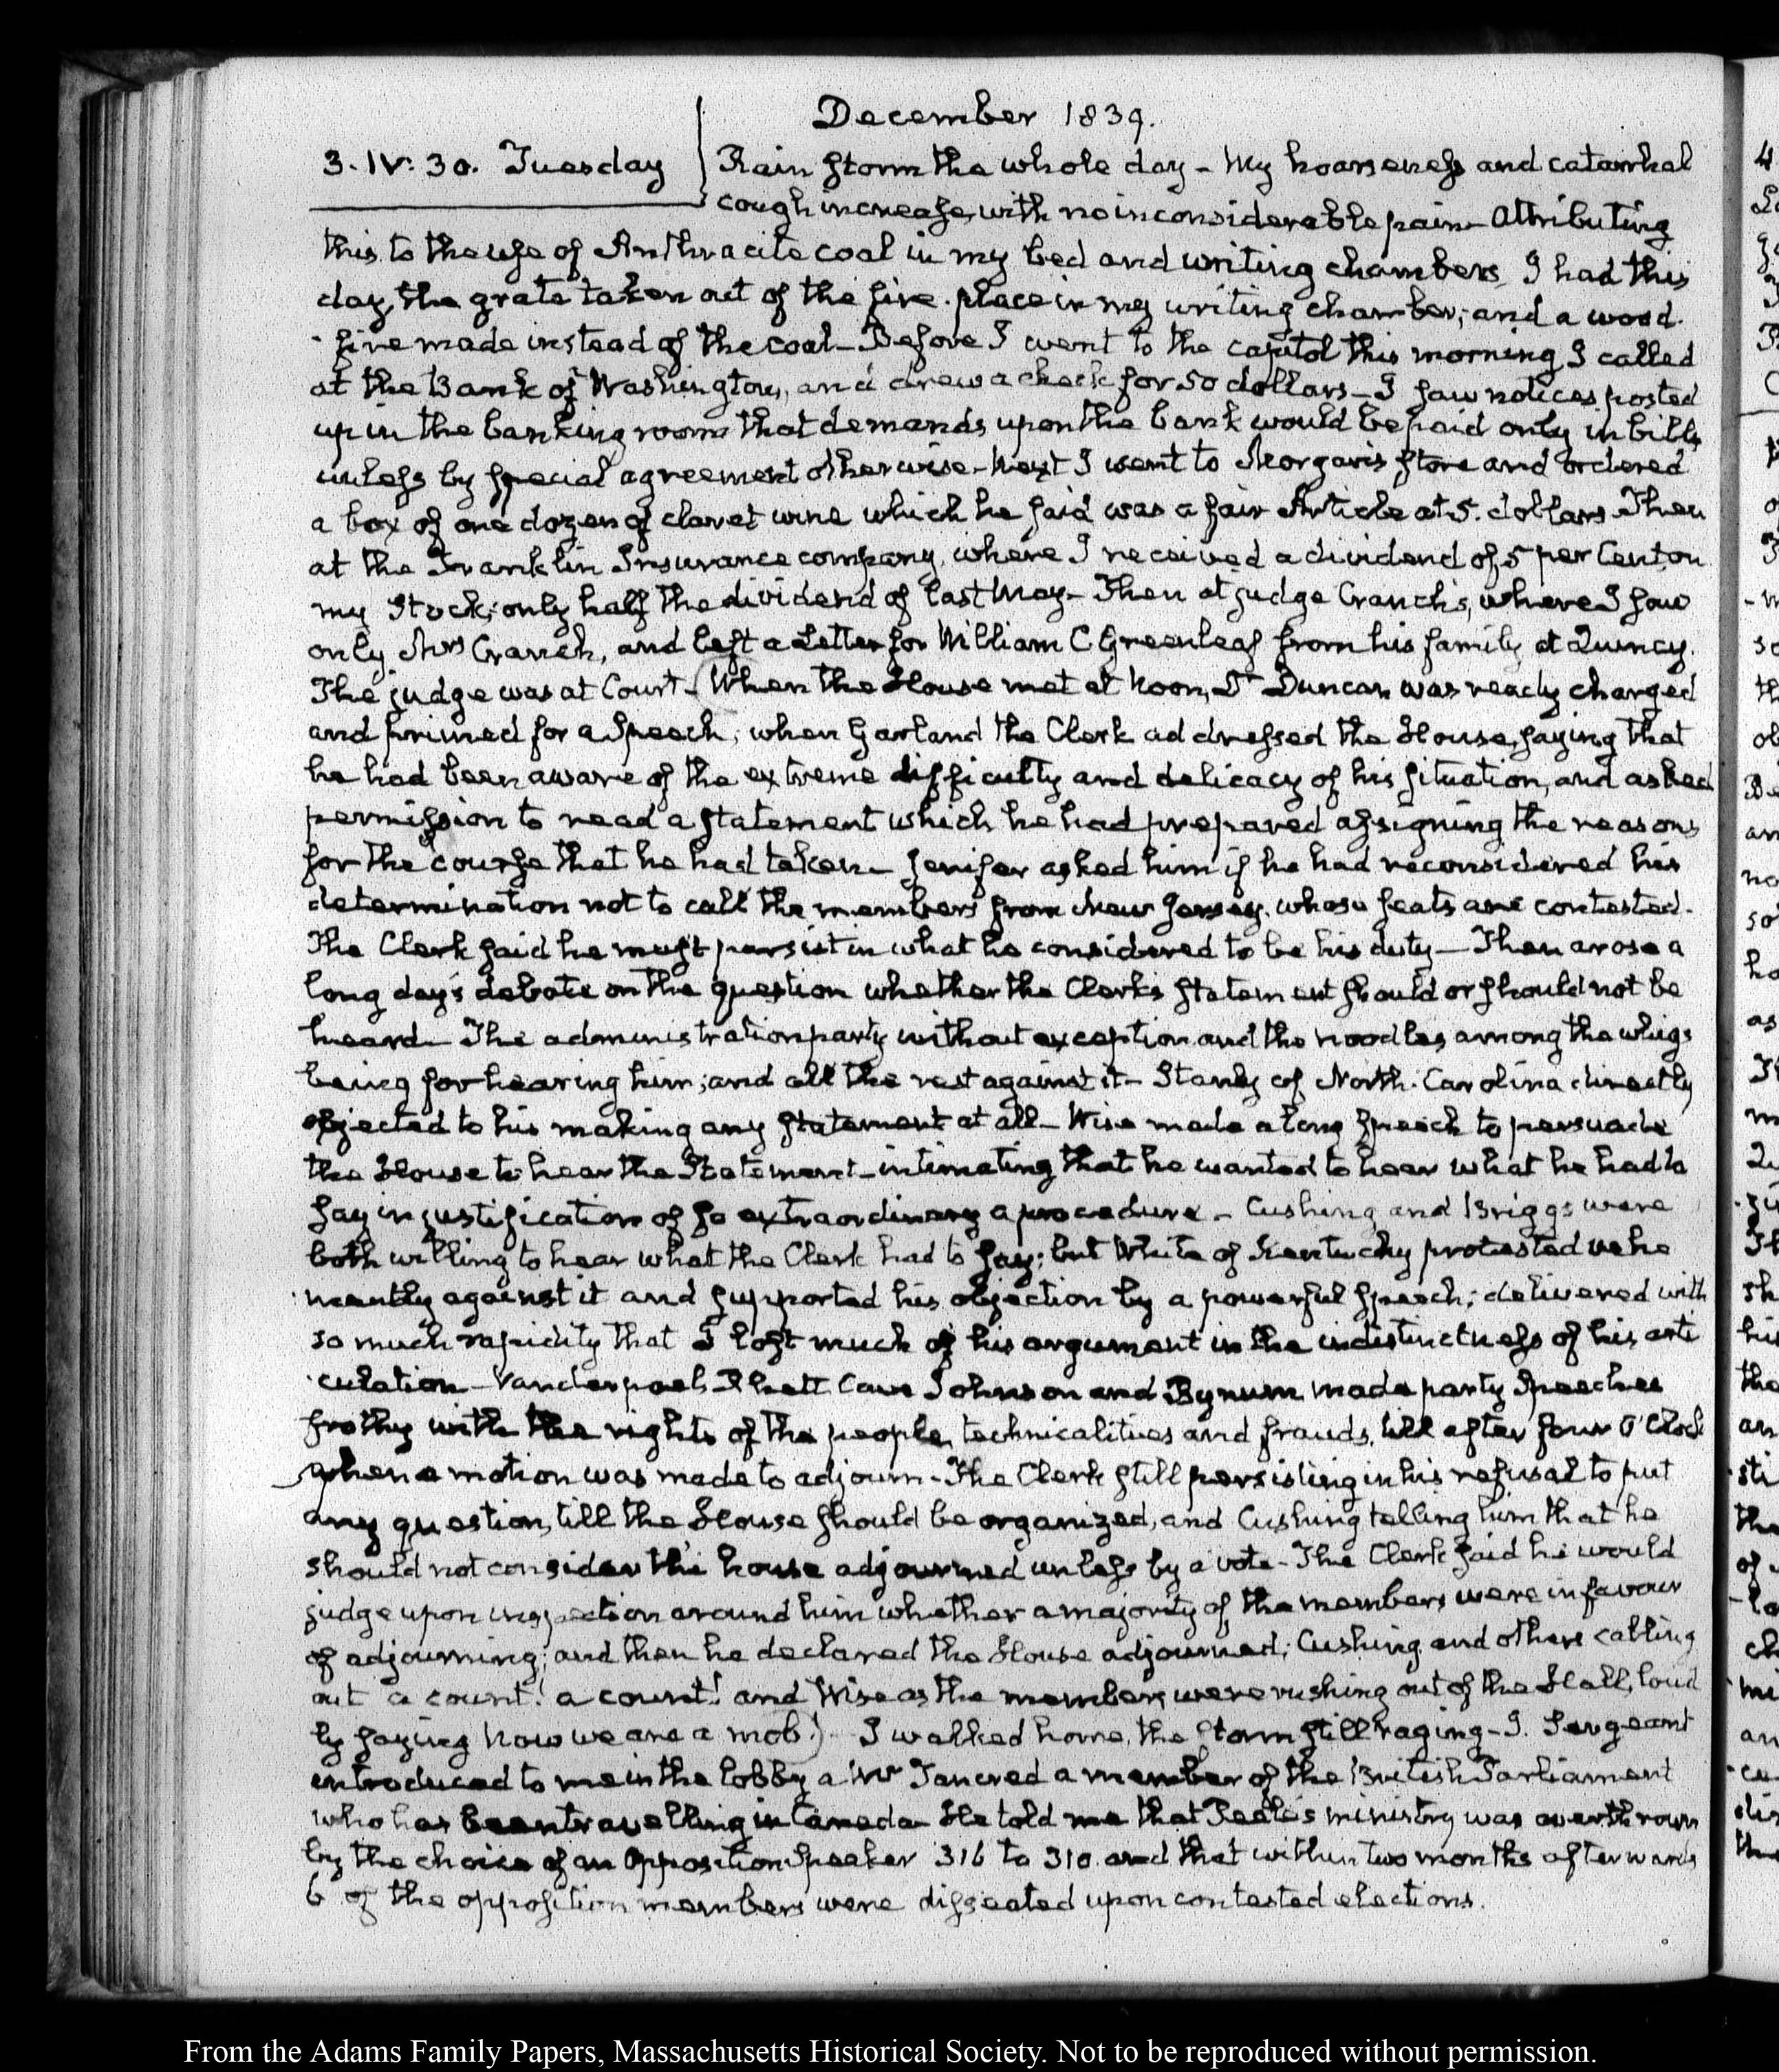 December 1839.
3. IV: 30. Tuesday
Rain Storm the whole day - My hoarseness and catarrhal
cough increase, with no inconsiderable pain - Attributing
this to the use of Anthracite coal in my bed and writing chambers, I had this
day, the grate taken out of the fire-place in my writing chamber; and a wood
fire made instead of the coal - Before I went to the capitol this morning I called
at the Bank of Washington, and drew a check for 50 dollars - I saw notices posted
up in the banking room that demands upon the bank would be paid only in bills
unless by special agreement otherwise - Next I went to Morgan's store and ordered
a box of one dozen of claret wine which he said was a fair Article at 5. dollars. Then
at the Franklin Insurance company, where I received a dividend of 5 per Cent on
my Stock; only half the dividend of last May - Then at judge Cranch's, where I saw
only Mrs Cranch, and left a Letter for William C Greenleaf from his family at Quincy.
The judge was at Court - (When the House met at Noon, Dr Duncan was ready charged
and primed for a Speech, when Garland the Clerk addressed the House, saying that
he had been aware of the extreme difficulty and delicacy of his situation, and asked
permission to read a statement which he had prepared assigning the reasons
for the course that he had taken - Jenifer asked him if he had reconsidered his
determination not to call the members from New Jersey, whose seats are contested.
The Clerk said he must persist in what he considered to be his duty - Then arose a
long day's debate on the question whether the Clerk's statement should or should not be
heard - The administration party without exception and the noodles among the whigs
being for hearing him; and all the rest against it - Stanly of North-Carolina directly
objected to his making any statement at all - Wise made a long speech to persuade
the House to hear the Statement - intimating that he wanted to hear what he had to
say in justification of so extraordinary a procedure - Cushing and Briggs were
both willing to hear what the Clerk had to say; but White of Kentucky protested vehe
mently against it and supported his objection by a powerful speech; delivered with
so much rapidity that I lost much of his argument in the indistinctness of his arti
culation - Vanderpoel, Rhett Cave Johnson and Bynum made party Speeches
frothy with the rights of the people, technicalities and frauds, till after four O'Clock
when a motion was made to adjourn - The Clerk still persisting in his refusal to put
any question, till the House should be organized, and Cushing telling him that he
should not consider the house adjourned unless by a vote - The Clerk said he would
judge upon inspection around him whether a majority of the members were in favour
of adjourning; and then he declared the House adjourned; Cushing and others calling
out a count! a count! and Wise as the members were rushing out of the Hall, loud
ly saying Now we are a mob!) - I walked home, the storm still raging - J. Sergeant
introduced to me in the lobby a Mr Tancred a member of the British Parliament
who has been travelling in Canada - He told me that Peele's ministry was overthrown
by the choice of an Opposition Speaker 316 to 310. and that within two months afterwards
6 of the opposition members were disseated upon contested elections.
From the Adams Family Papers, Massachusetts Historical Society. Not to be reproduced without permission.